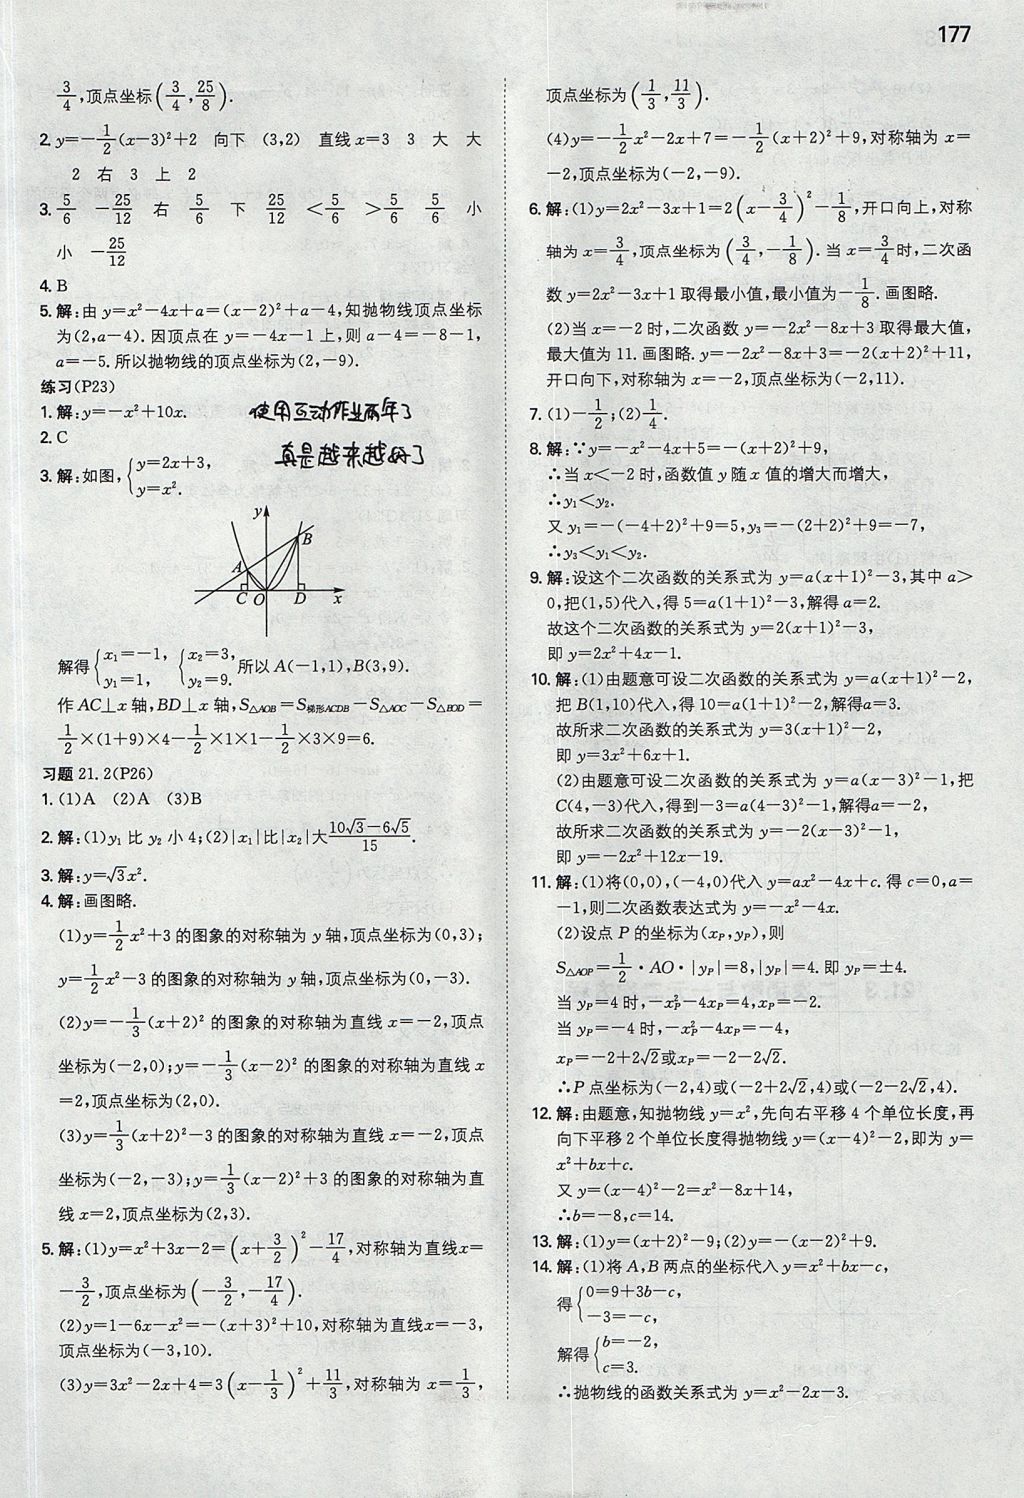 177
3/4,顶点坐标(3/4,25/8).
2. y=-1/2(x-3)²+2 向下 (3,2) 直线x=3 3 大 大
2 右 3 上 2
3. 5/6 -25/12 右 5/6 下 25/12 <5/6 >5/6 5/6 小
小 -25/12
4. B
5. 解:由 y=x²-4x+a=(x-2)²+a-4,知抛物线顶点坐标
为(2,a-4).因顶点在 y=-4x-1 上,则 a-4=-8-1,
a=-5.所以抛物线的顶点坐标为(2,-9).
练习(P23)
1. 解:y=-x²+10x.
使用互动作业两年了
2. C
真是越来越好了
3. 解:如图,{y=2x+3,
y=x².
y
B
A
C O D x
解得{x₁=-1, {x₂=3,
y₁=1, y₂=9. 所以 A(-1,1),B(3,9).
作 AC⊥x 轴,BD⊥x 轴,S△AOB=S梯形ACDB-S△AOC-S△BOD=
1/2×(1+9)×4-1/2×1×1-1/2×3×9=6.
习题 21.2(P26)
1. (1)A (2)A (3)B
2. 解:(1)y₁ 比 y₂ 小 4;(2)|x₁|比|x₂|大(10√3-6√5)/15.
3. 解:y=√3x².
4. 解:画图略.
(1)y=1/2x²+3 的图象的对称轴为 y 轴,顶点坐标为(0,3);
y=1/2x²-3 的图象的对称轴为 y 轴,顶点坐标为(0,-3).
(2)y=-1/3(x+2)² 的图象的对称轴为直线 x=-2,顶点
坐标为(-2,0);y=-1/3(x-2)² 的图象的对称轴为直线 x
=2,顶点坐标为(2,0).
(3)y=1/3(x+2)²-3 的图象的对称轴为直线 x=-2,顶点
坐标为(-2,-3);y=1/3(x-2)²+3 的图象的对称轴为直
线 x=2,顶点坐标为(2,3).
5. 解:(1)y=x²+3x-2=(x+3/2)²-17/4,对称轴为直线x=
-3/2,顶点坐标为(-3/2,-17/4).
(2)y=1-6x-x²=-(x+3)²+10,对称轴为直线x=-3,
顶点坐标为(-3,10).
(3)y=3x²-2x+4=3(x-1/3)²+11/3,对称轴为 x=1/3,
顶点坐标为(1/3,11/3).
(4)y=-1/2x²-2x+7=-1/2(x+2)²+9,对称轴为 x=
-2,顶点坐标为(-2,-9).
6. 解:(1)y=2x²-3x+1=2(x-3/4)²-1/8,开口向上,对称
轴为 x=3/4,顶点坐标为(3/4,-1/8).当 x=3/4时,二次函
数 y=2x²-3x+1取得最小值,最小值为-1/8.画图略.
(2)当 x=-2 时,二次函数 y=-2x²-8x+3 取得最大值,
最大值为 11.画图略.y=-2x²-8x+3=-2(x+2)²+11,
开口向下,对称轴为 x=-2,顶点为(-2,11).
7. (1)-1/2;(2)1/4.
8. 解:∵y=-x²-4x+5=-(x+2)²+9,
∴当 x<-2 时,函数值 y 随 x 值的增大而增大,
∴y₁<y₂.
又 y₁=-(-4+2)²+9=5,y₃=-(2+2)²+9=-7,
∴y₃<y₁<y₂.
9. 解:设这个二次函数的关系式为 y=a(x+1)²-3,其中 a>
0,把(1,5)代入,得 5=a(1+1)²-3,解得 a=2.
故这个二次函数的关系式为 y=2(x+1)²-3,
即 y=2x²+4x-1.
10. 解:(1)由题意可设二次函数的关系式为 y=a(x+1)²-2,
把 B(1,10)代入,得 10=a(1+1)²-2,解得a=3.
故所求二次函数的关系式为 y=3(x+1)²-2,
即 y=3x²+6x+1.
(2)由题意可设二次函数的关系式为 y=a(x-3)²-1,把
C(4,-3)代入,得到-3=a(4-3)²-1,解得a=-2,
故所求二次函数的关系式为 y=-2(x-3)²-1,
即 y=-2x²+12x-19.
11. 解:(1)将(0,0),(-4,0)代入 y=ax²-4x+c.得 c=0,a=
-1,则二次函数表达式为 y=-x²-4x.
(2)设点 P 的坐标为(xP,yP),则
S△AOP=1/2·AO·|yP|=8,|yP|=4.即 yP=±4.
当 yP=4时,-x²P-4xP=4,xP=-2.
当 yP=-4 时,-x²P-4xP=-4,
xP=-2+2√2或xP=-2-2√2.
∴P 点坐标为(-2,4)或(-2+2√2,4)或(-2-2√2,4).
12. 解:由题意,知抛物线 y=x²,先向右平移 4 个单位长度,再
向下平移 2 个单位长度得抛物线 y=(x-4)²-2,即为 y=
x²+bx+c.
又 y=(x-4)²-2=x²-8x+14,
∴b=-8,c=14.
13. 解:(1)y=(x+2)²-9;(2)y=-(x-2)²+9.
14. 解:(1)将 A,B 两点的坐标代入 y=x²+bx-c,
得{0=9+3b-c,
-3=-c,
解得{b=-2,
c=3.
∴抛物线的函数关系式为 y=x²-2x-3.